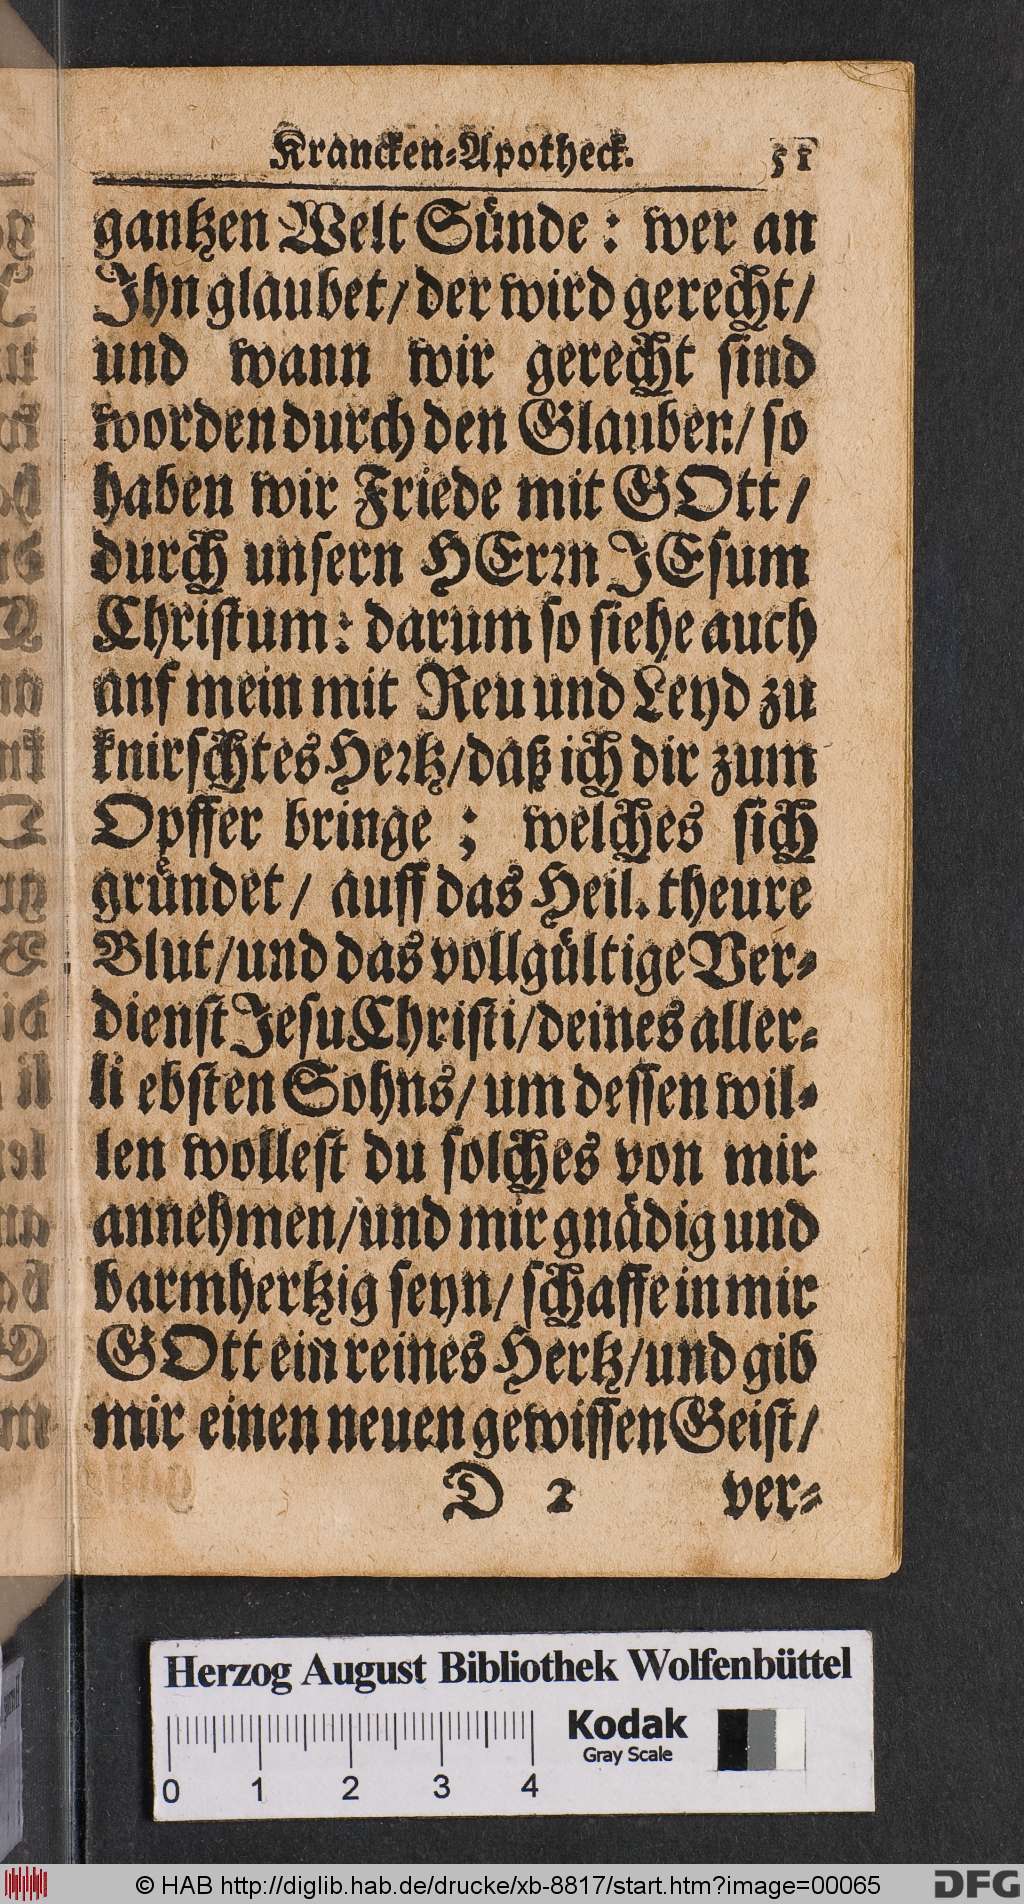 Krancken-Apotheck. 51
gantzen Welt Sünde: wer an
Ihn glaubet/ der wird gerecht/
und wann wir gerecht sind
worden durch den Glauben/ so
haben wir Friede mit GOtt/
durch unsern HErrn JEsum
Christum: darum so siehe auch
anf mein mit Reu und Leyd zu
knirschtes Hertz/ daß ich dir zum
Opffer bringe; welches sich
gründet/ auff das Heil. theure
Blut/ und das vollgültige Ver-
dienst Jesu Christi/ deines aller-
li ebsten Sohns/ um dessen wil-
len wollest du solches von mir
annehmen/ und mir gnädig und
barmhertzig seyn/ schaffe in mir
GOtt ein reines Hertz/ und gib
mir einen neuen gewissen Geist/
D 2 ver-
Herzog August Bibliothek Wolfenbüttel
0 1 2 3 4
Kodak
Gray Scale
© HAB http://diglib.hab.de/drucke/xb-8817/start.htm?image=00065
DFG